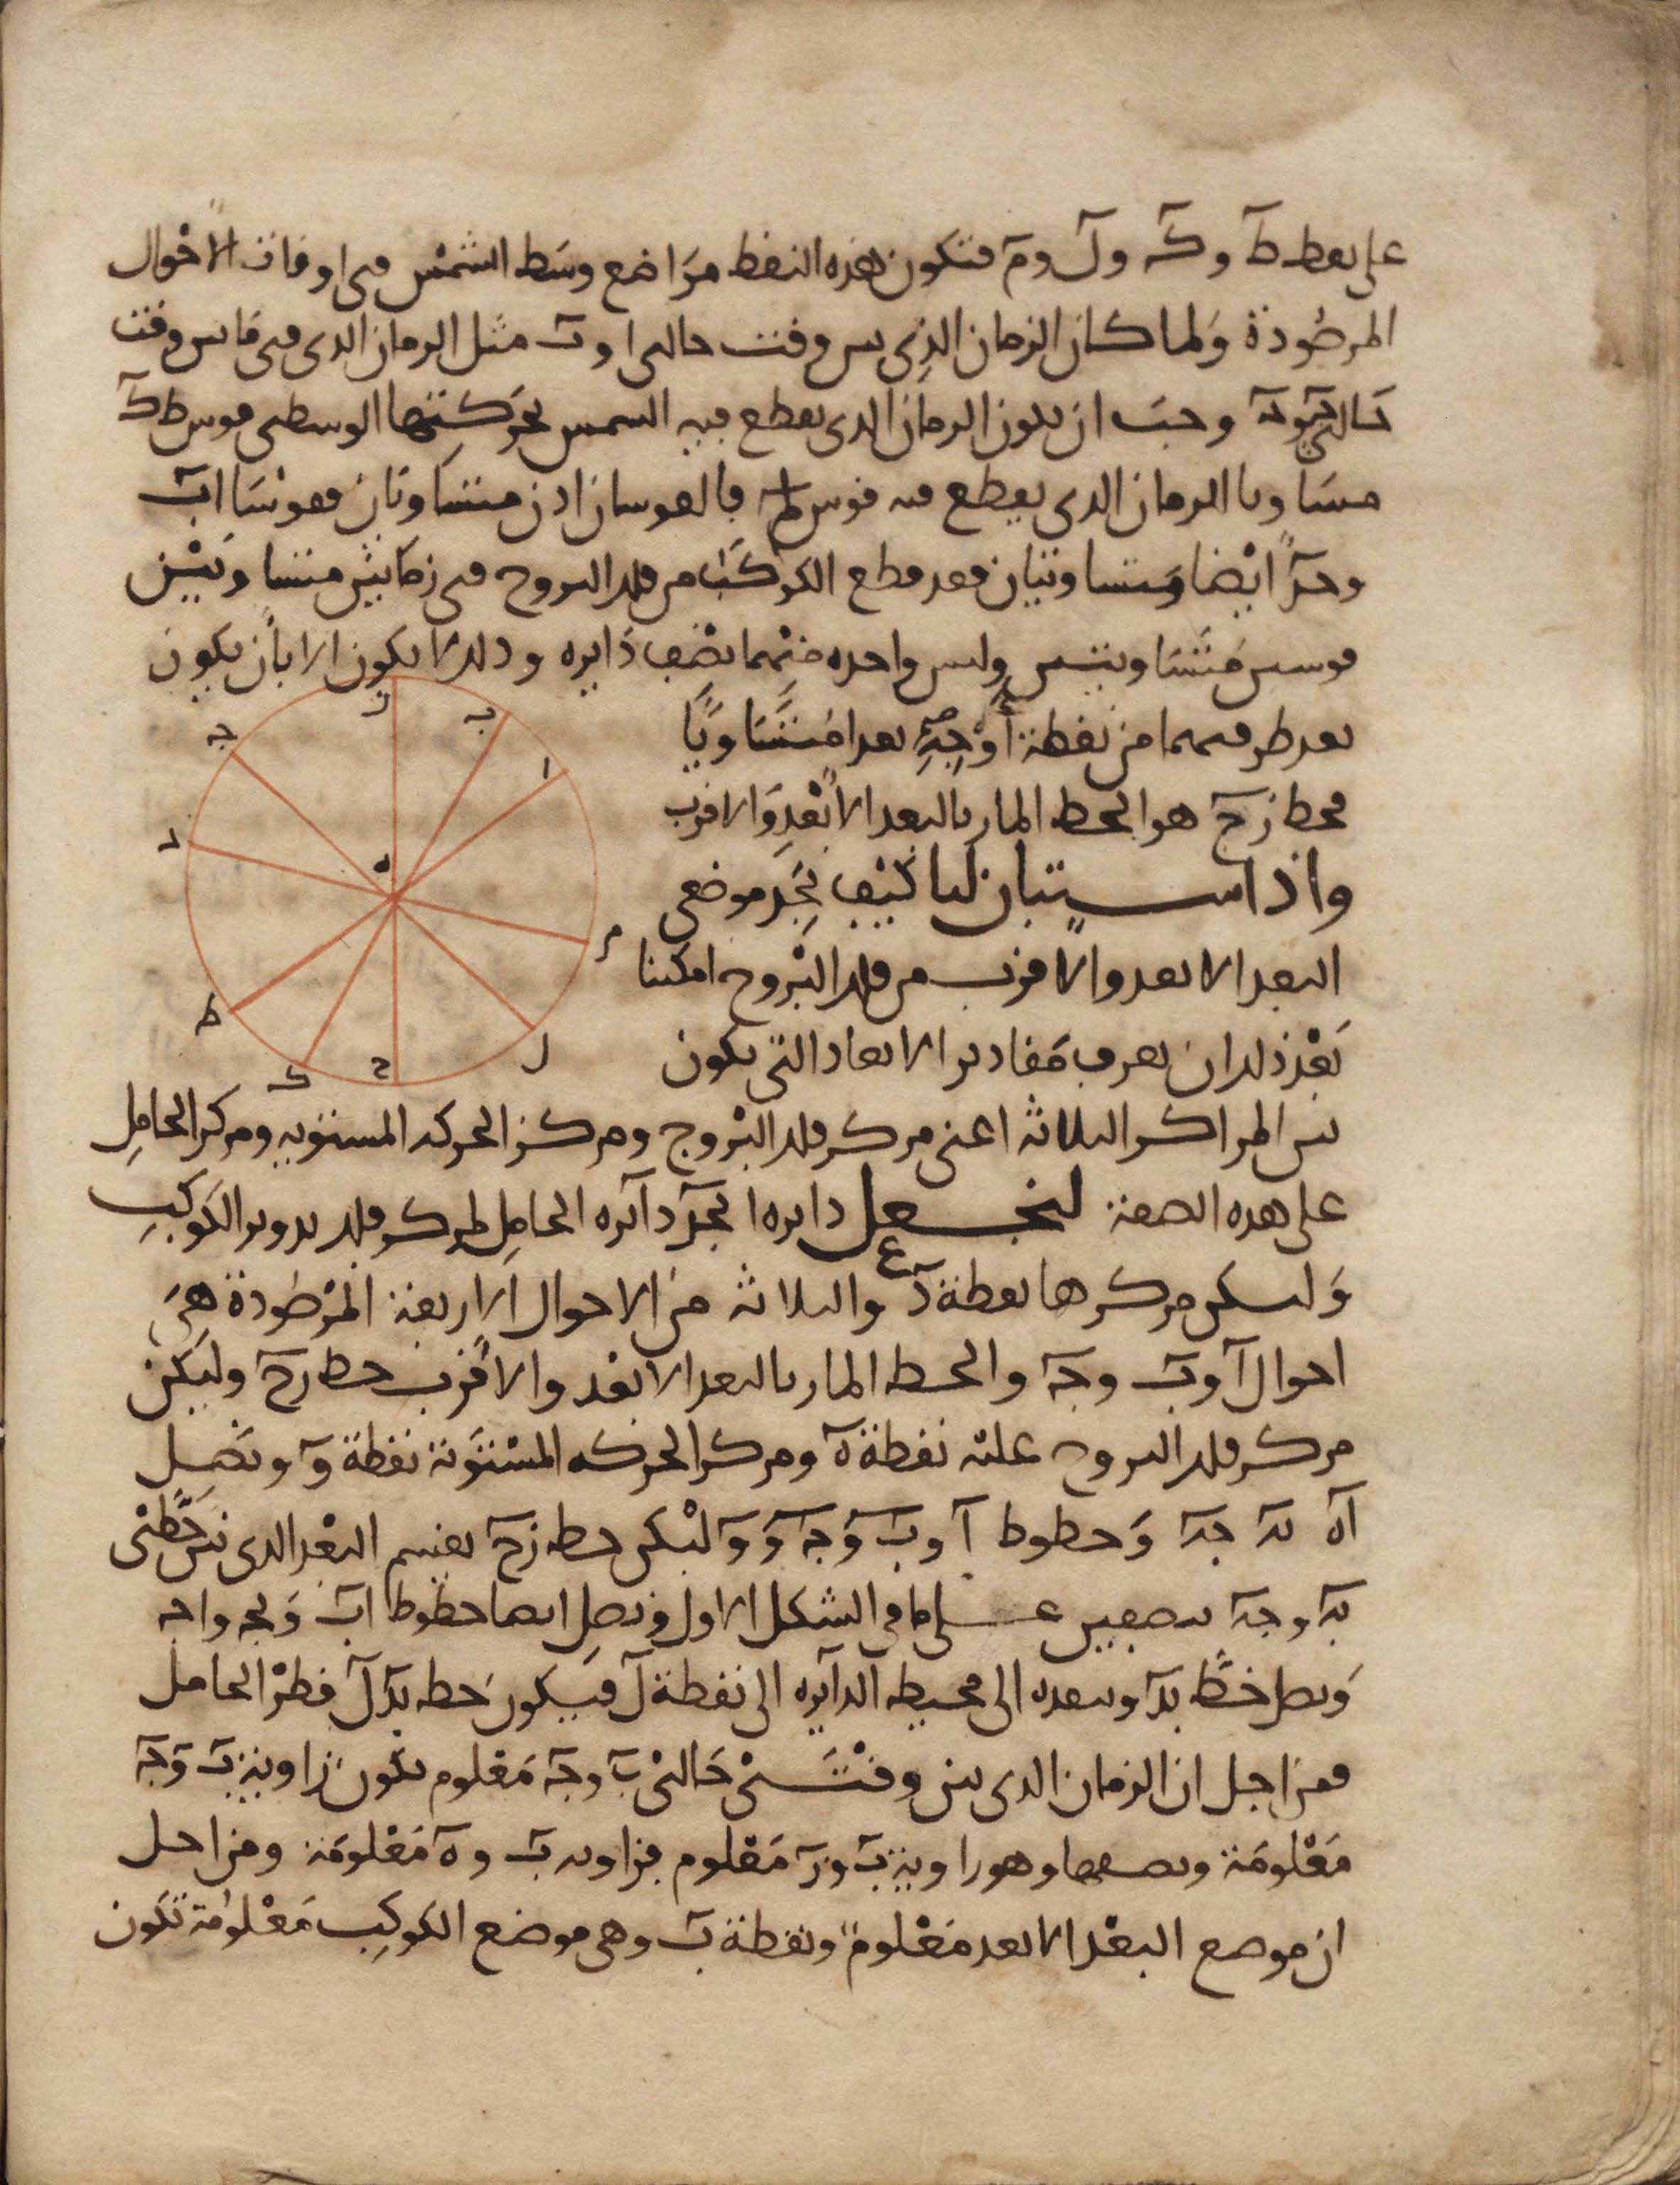 على نقط ط وك ول وم فتكون هذه النقط مواضع وسط الشمس في اوقات الاحوال
المرصودة ولما كان الزمان الذي بين وقت حالتي ا وب مثل الزمان الذي في ما بين وقت
حالتي ج ود وجب ان يكون الزمان الذي يقطع فيه الشمس بحركتها الوسطى قوس ط ك
مساويا للزمان الذي يقطع فيه قوس ل م فالقوسان اذن متساويتان فقوسا اب
وجد ايضا متساويتان فقد قطع الكوكب من فلك البروج في زمانين متساويين
قوسين متساويتين وليس واحدة منهما نصف دايره وذلك لا يكون الا بان يكون
بعد طرفيهما من نقطة اوجه بعدا متساويا
فخط زح هو الخط المار بالبعد الابعد والاقرب
واذ استبان لنا كيف نجد موضعي
البعد الابعد والاقرب من فلك البروج امكننا
بعد ذلك ان نعرف مقادير الابعاد التي يكون
بين المراكز الثلاثه اعني مركز فلك البروج ومركز الحركه المستويه ومركز الحامل
على هذه الصفة لنجعل دايره ابجد دائره الحامل لمركز فلك تدوير الكوكب
وليكن مركزها نقطة د والثلاثه من الاحوال الاربعة المرصودة هي
احوال ا وب وجـ والخط المار بالبعد الابعد والاقرب خط زح وليكن
مركز فلك البروج عليه نقطة ه ومركز الحركه المستوية نقطة و ونصل
اه به جه وخطوط ا و ب و جـ و وليكن خط زح يقسم البعد الذي بين خطي
به وجه بنصفين على ما في الشكل الاول ونصل ايضا خطوط اب وبج واج
ونصل خط بد وننفذه الى محيط الدايره الى نقطة ل فيكون خط بدل قطر الحامل
فمن اجل ان الزمان الذي بين وقتي حالتي ب وجـ معلوم تكون زاوية ب و جـ
معلومة ونصفها وهو زاوية ب و ز معلوم فزاويه ب و ه معلومة ومن اجل
ان موضع البعد الابعد معلوم ونقطة ب وهي موضع الكوكب معلومة تكون
ز
ب
ا
جـ
د
ه
م
ط
ك
ح
ل